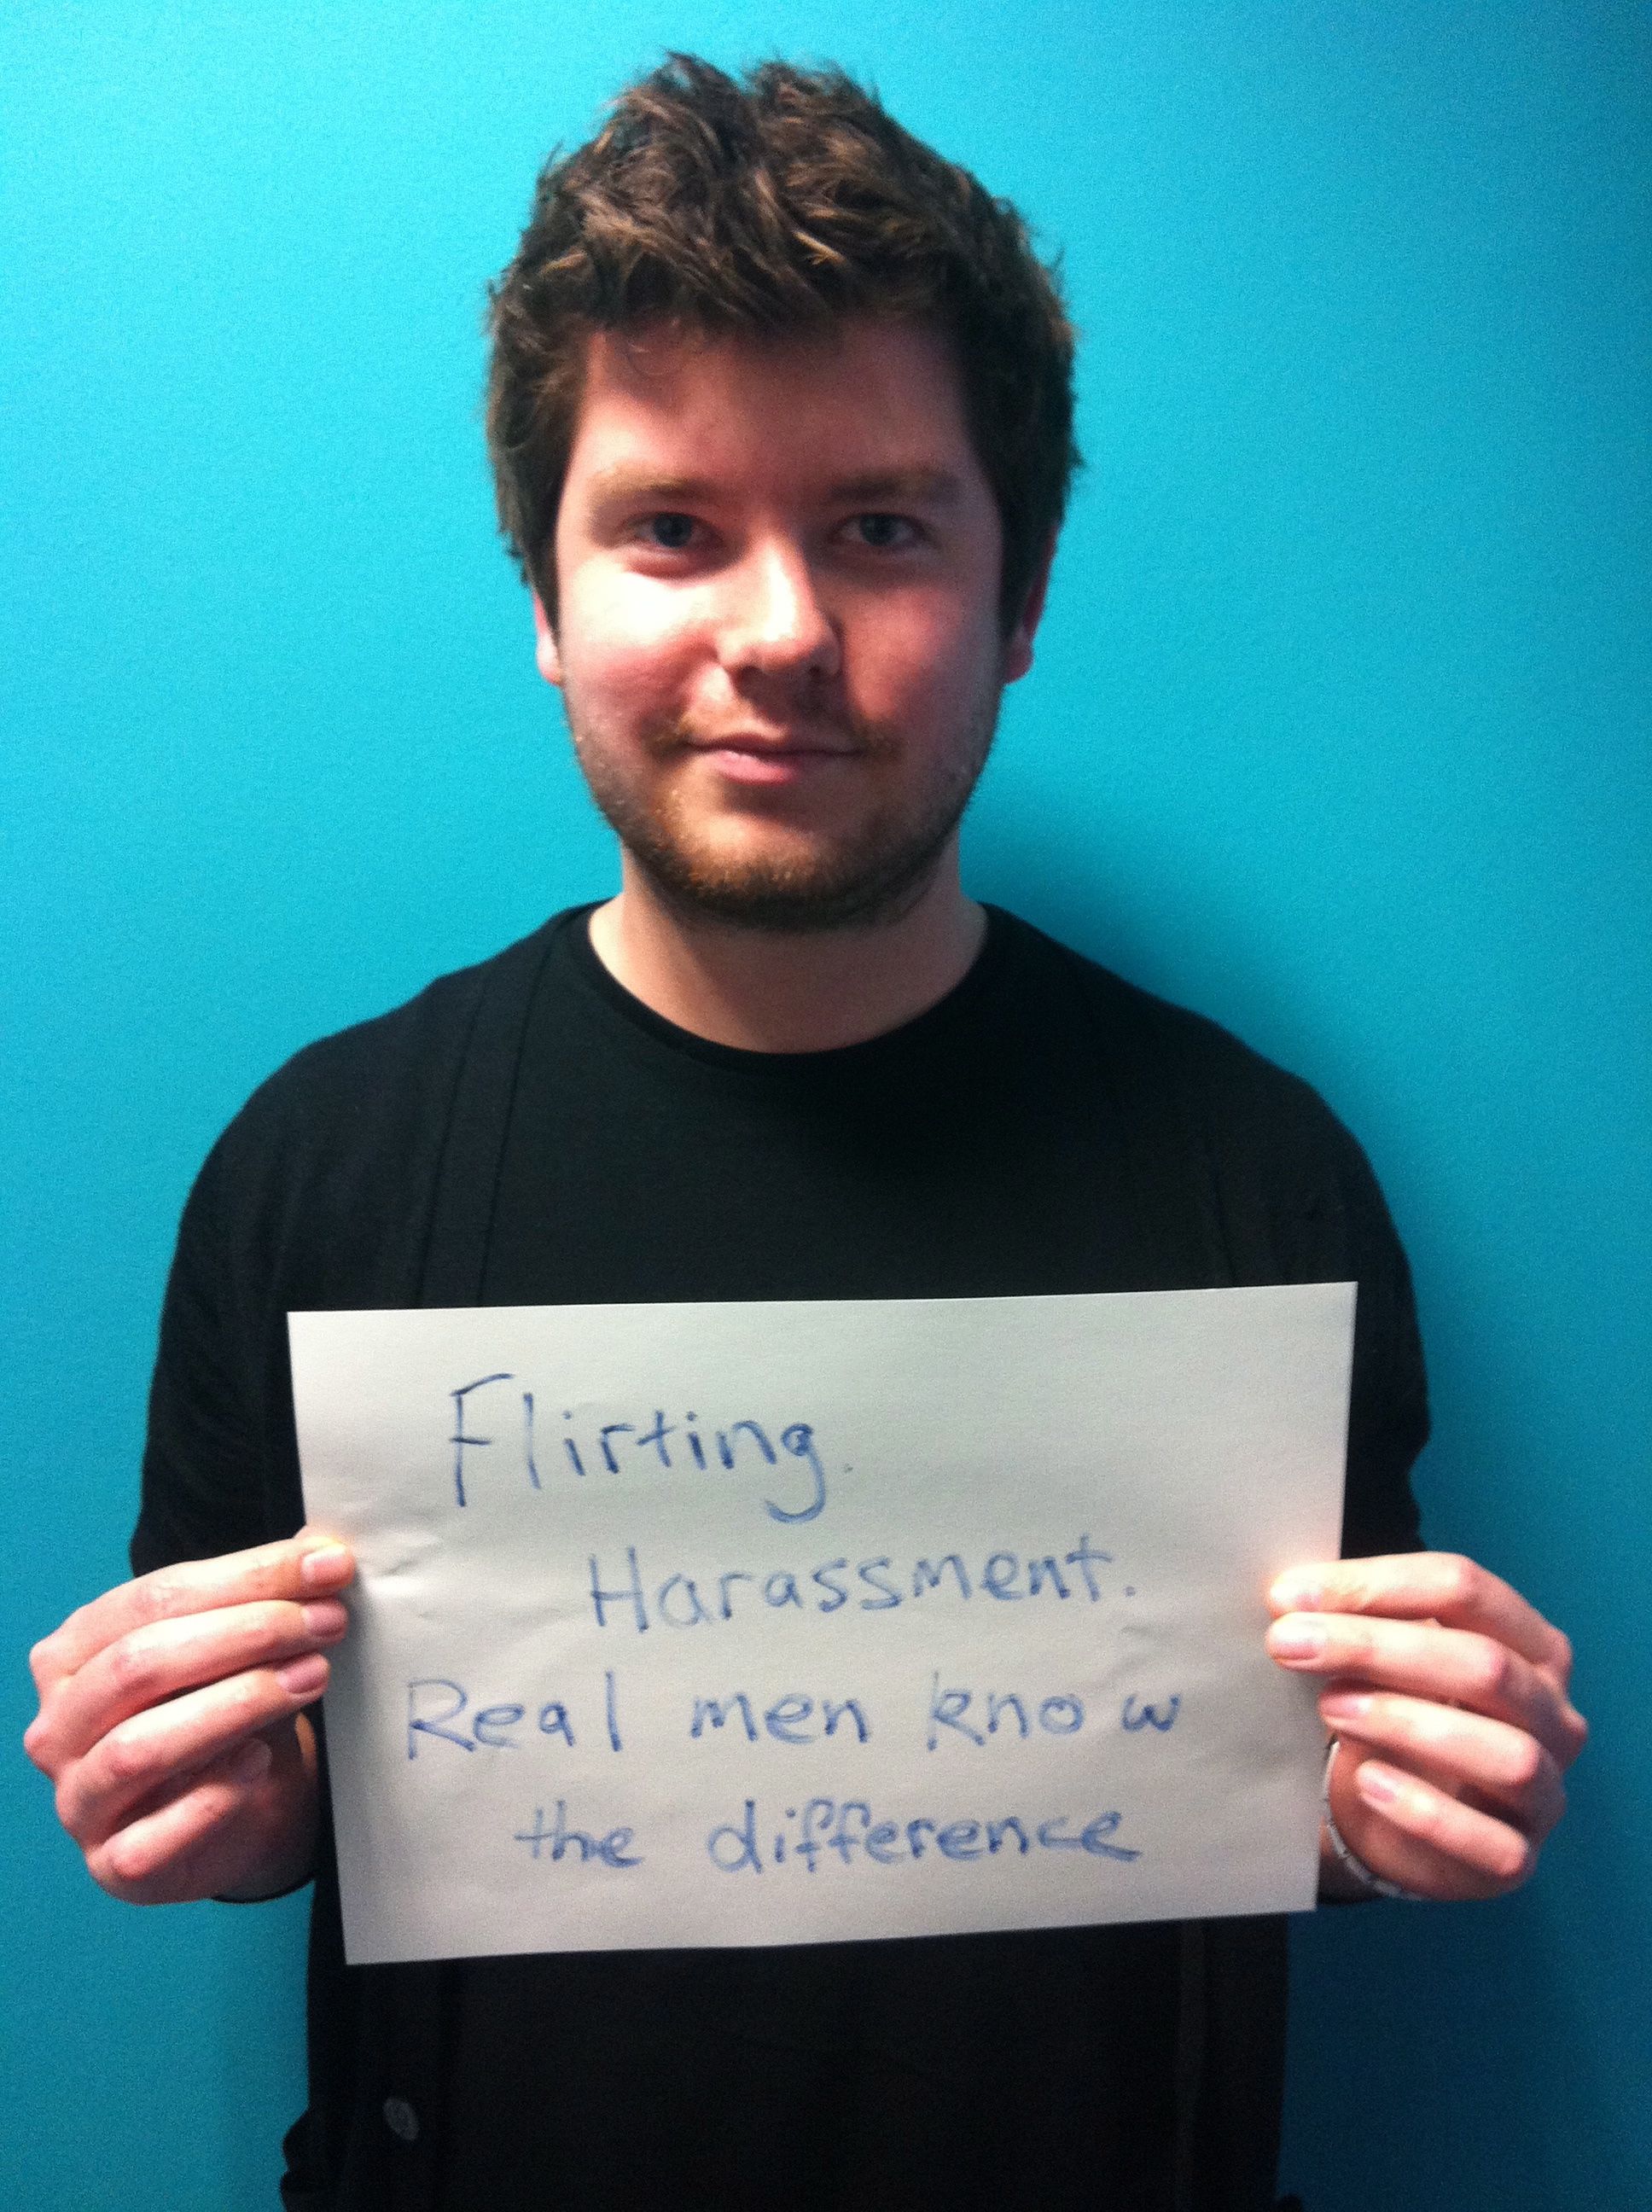 Flirting.
Harassment.
Real men know
the difference